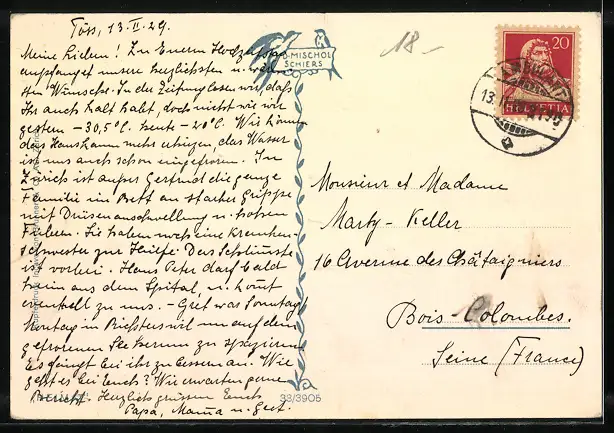 Töss, 13. II. 29.
Meine Lieben! Zu Euerm Hochzeitstag
empfanget unsere herzlichsten u. wärm-
sten Wünsche. In der Zeitung lesen wir, dass
Ihr auch kalt habt, doch nicht wie wir
gestern -30,5°C. heute -20°C. Wir können
das Haus kaum mehr erheizen, das Wasser
ist uns auch schon eingefroren. In
Zürich ist ausser Gertrud die ganze
Familie im Bett an starker Grippe
mit Drüsenanschwellung u. hohem
Fieber. Sie haben noch eine Kranken-
schwester zur Hülfe. Das Schlimmste
ist vorbei. Hans Peter darf bald
heim aus dem Spital, u. kommt
eventuell zu uns. - Gret war Sonntag
in Richterswil um auf dem
gefrorenen See herum zu spazieren.
Es fängt bei ihr zu bessern an. Wie
geht es bei Euch? Wir erwarten gerne
Bericht. Herzlich grüssen Euch
Papa, Mama u. Gret.
D. MISCHOL
SCHIERS
18 -
20
HELVETIA
13. II.
Monsieur et Madame
Marty-Keller
16 Avenue des Châtaigniers
Bois-Colombes.
Seine (France)
33/3905